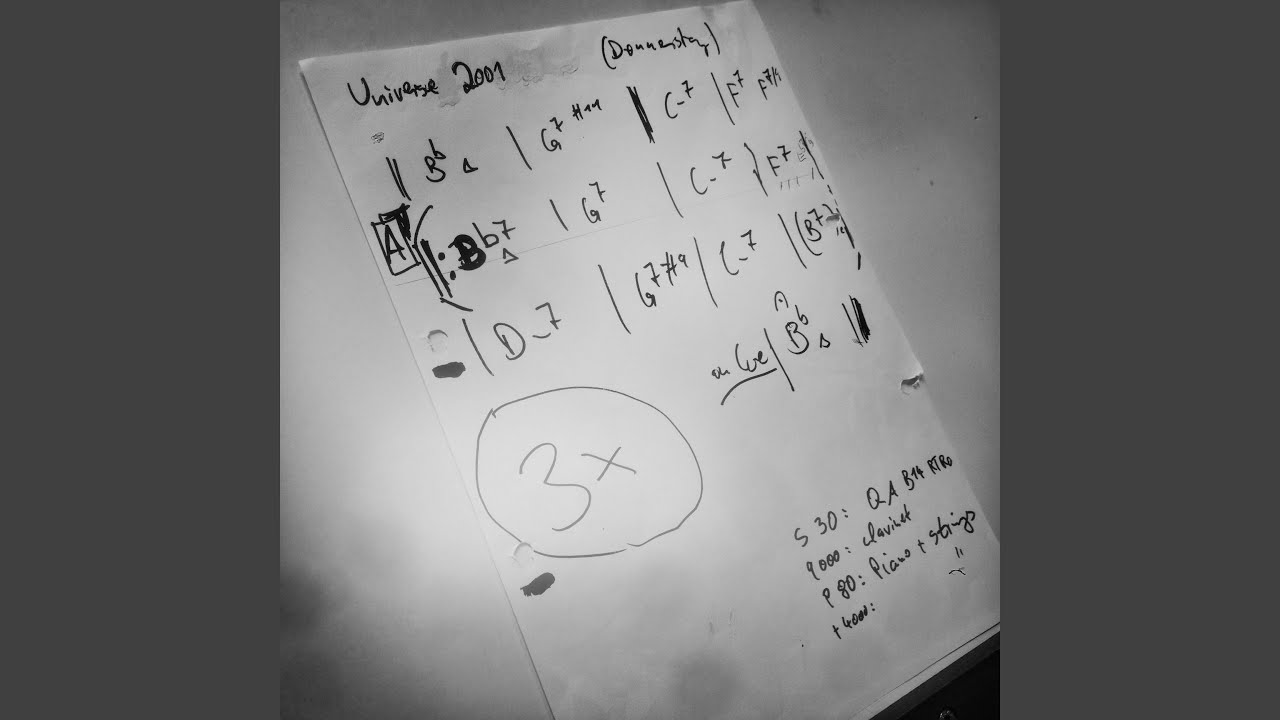 Universe 2001 (Donnerstag)
|| Bb Δ | G7 #11 || C-7 | F7 F7/9
A ||: Bb7 Δ | G7 | C-7 | F7 |
| D-7 | G7 #9 | C-7 | (B7) |
on Cue | Bb Δ ||
3x
S 30: QA B14 RTRO
9000: clavinet
P 80: Piano + strings
+4000: "